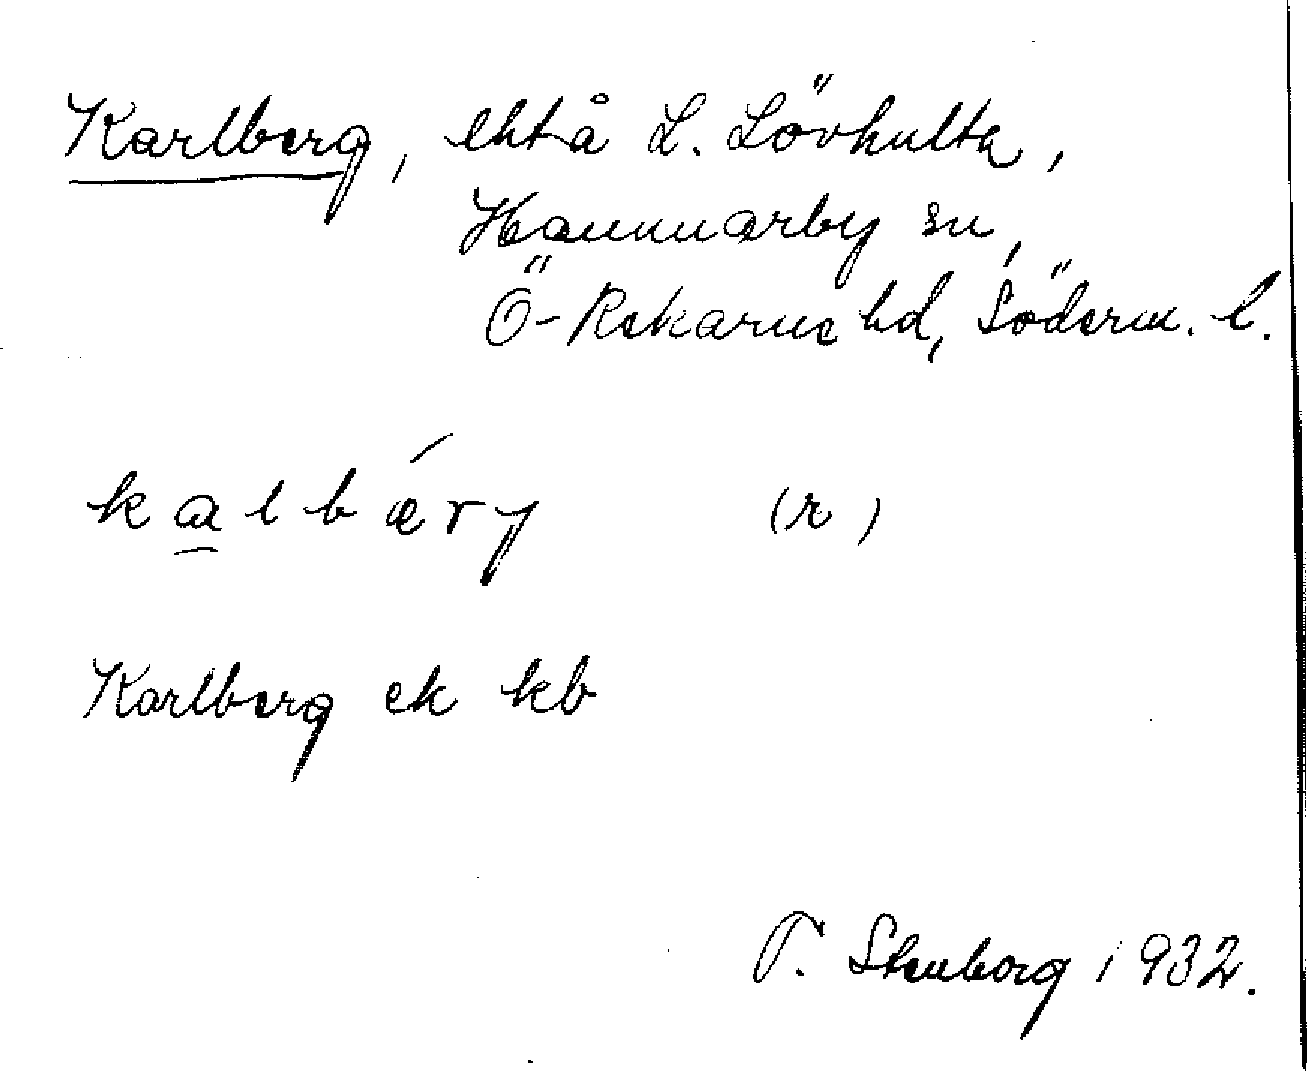 Karlberg, lht å L. Lövhulta,
Hammarby sn,
Ö-Rekarne hd, Söderm. l.
kalbǽrγ (r)
Karlberg ek kb
T. Stenborg 1932.